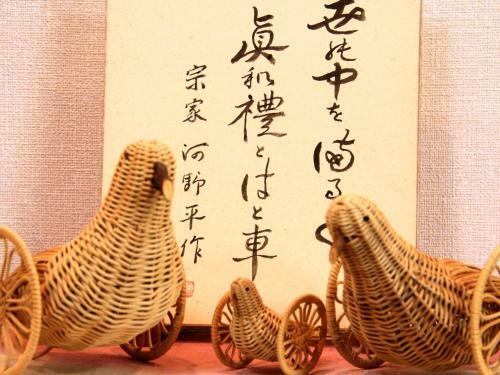 世の中を満るく
眞和禮とはと車
宗家 河野平作